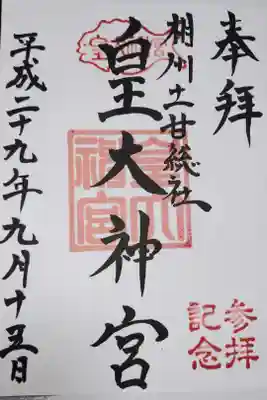 奉拝
相州土甘総社
皇大神宮
平成二十九年九月十五日
参拝
記念